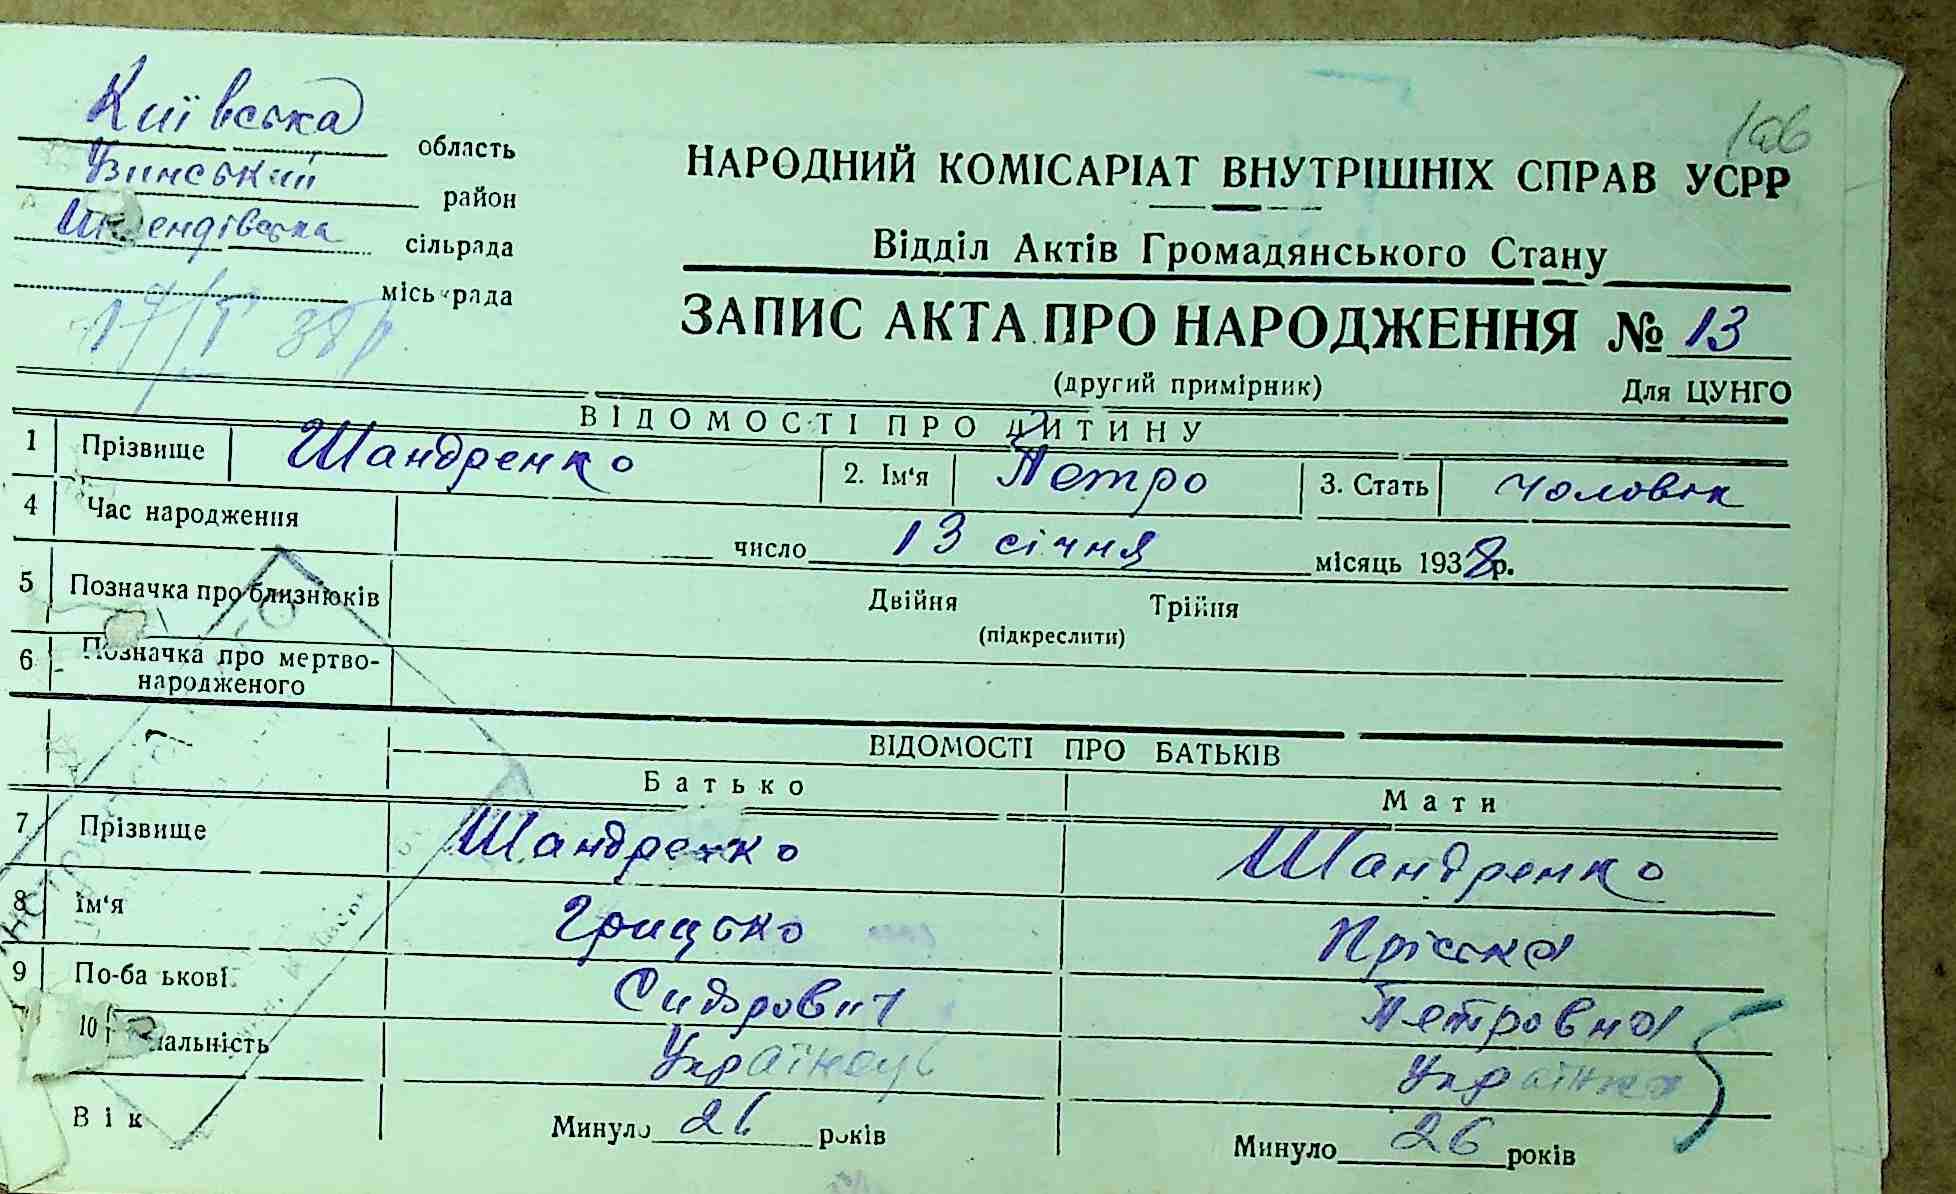 Київська область
район
сільрада
міськрада
17/I 38р.
106
НАРОДНИЙ КОМІСАРІАТ ВНУТРІШНІХ СПРАВ УСРР
Відділ Актів Громадянського Стану
ЗАПИС АКТА ПРО НАРОДЖЕННЯ № 13
(другий примірник) Для ЦУНГО
ВІДОМОСТІ ПРО ДИТИНУ
1 Прізвище Шандренко 2. Ім'я Петро 3. Стать чоловік
4 Час народження число 13 січня місяць 1938 р.
5 Позначка про близнюків Двійня Трійня
(підкреслити)
6 Позначка про мертво-
народженого
ВІДОМОСТІ ПРО БАТЬКІВ
Батько Мати
7 Прізвище Шандренко Шандренко
8 Ім'я Грицько Пріська
9 По-батькові Сидорович Петровна
10 Українець Українка
Вік Минуло 26 років Минуло 26 років